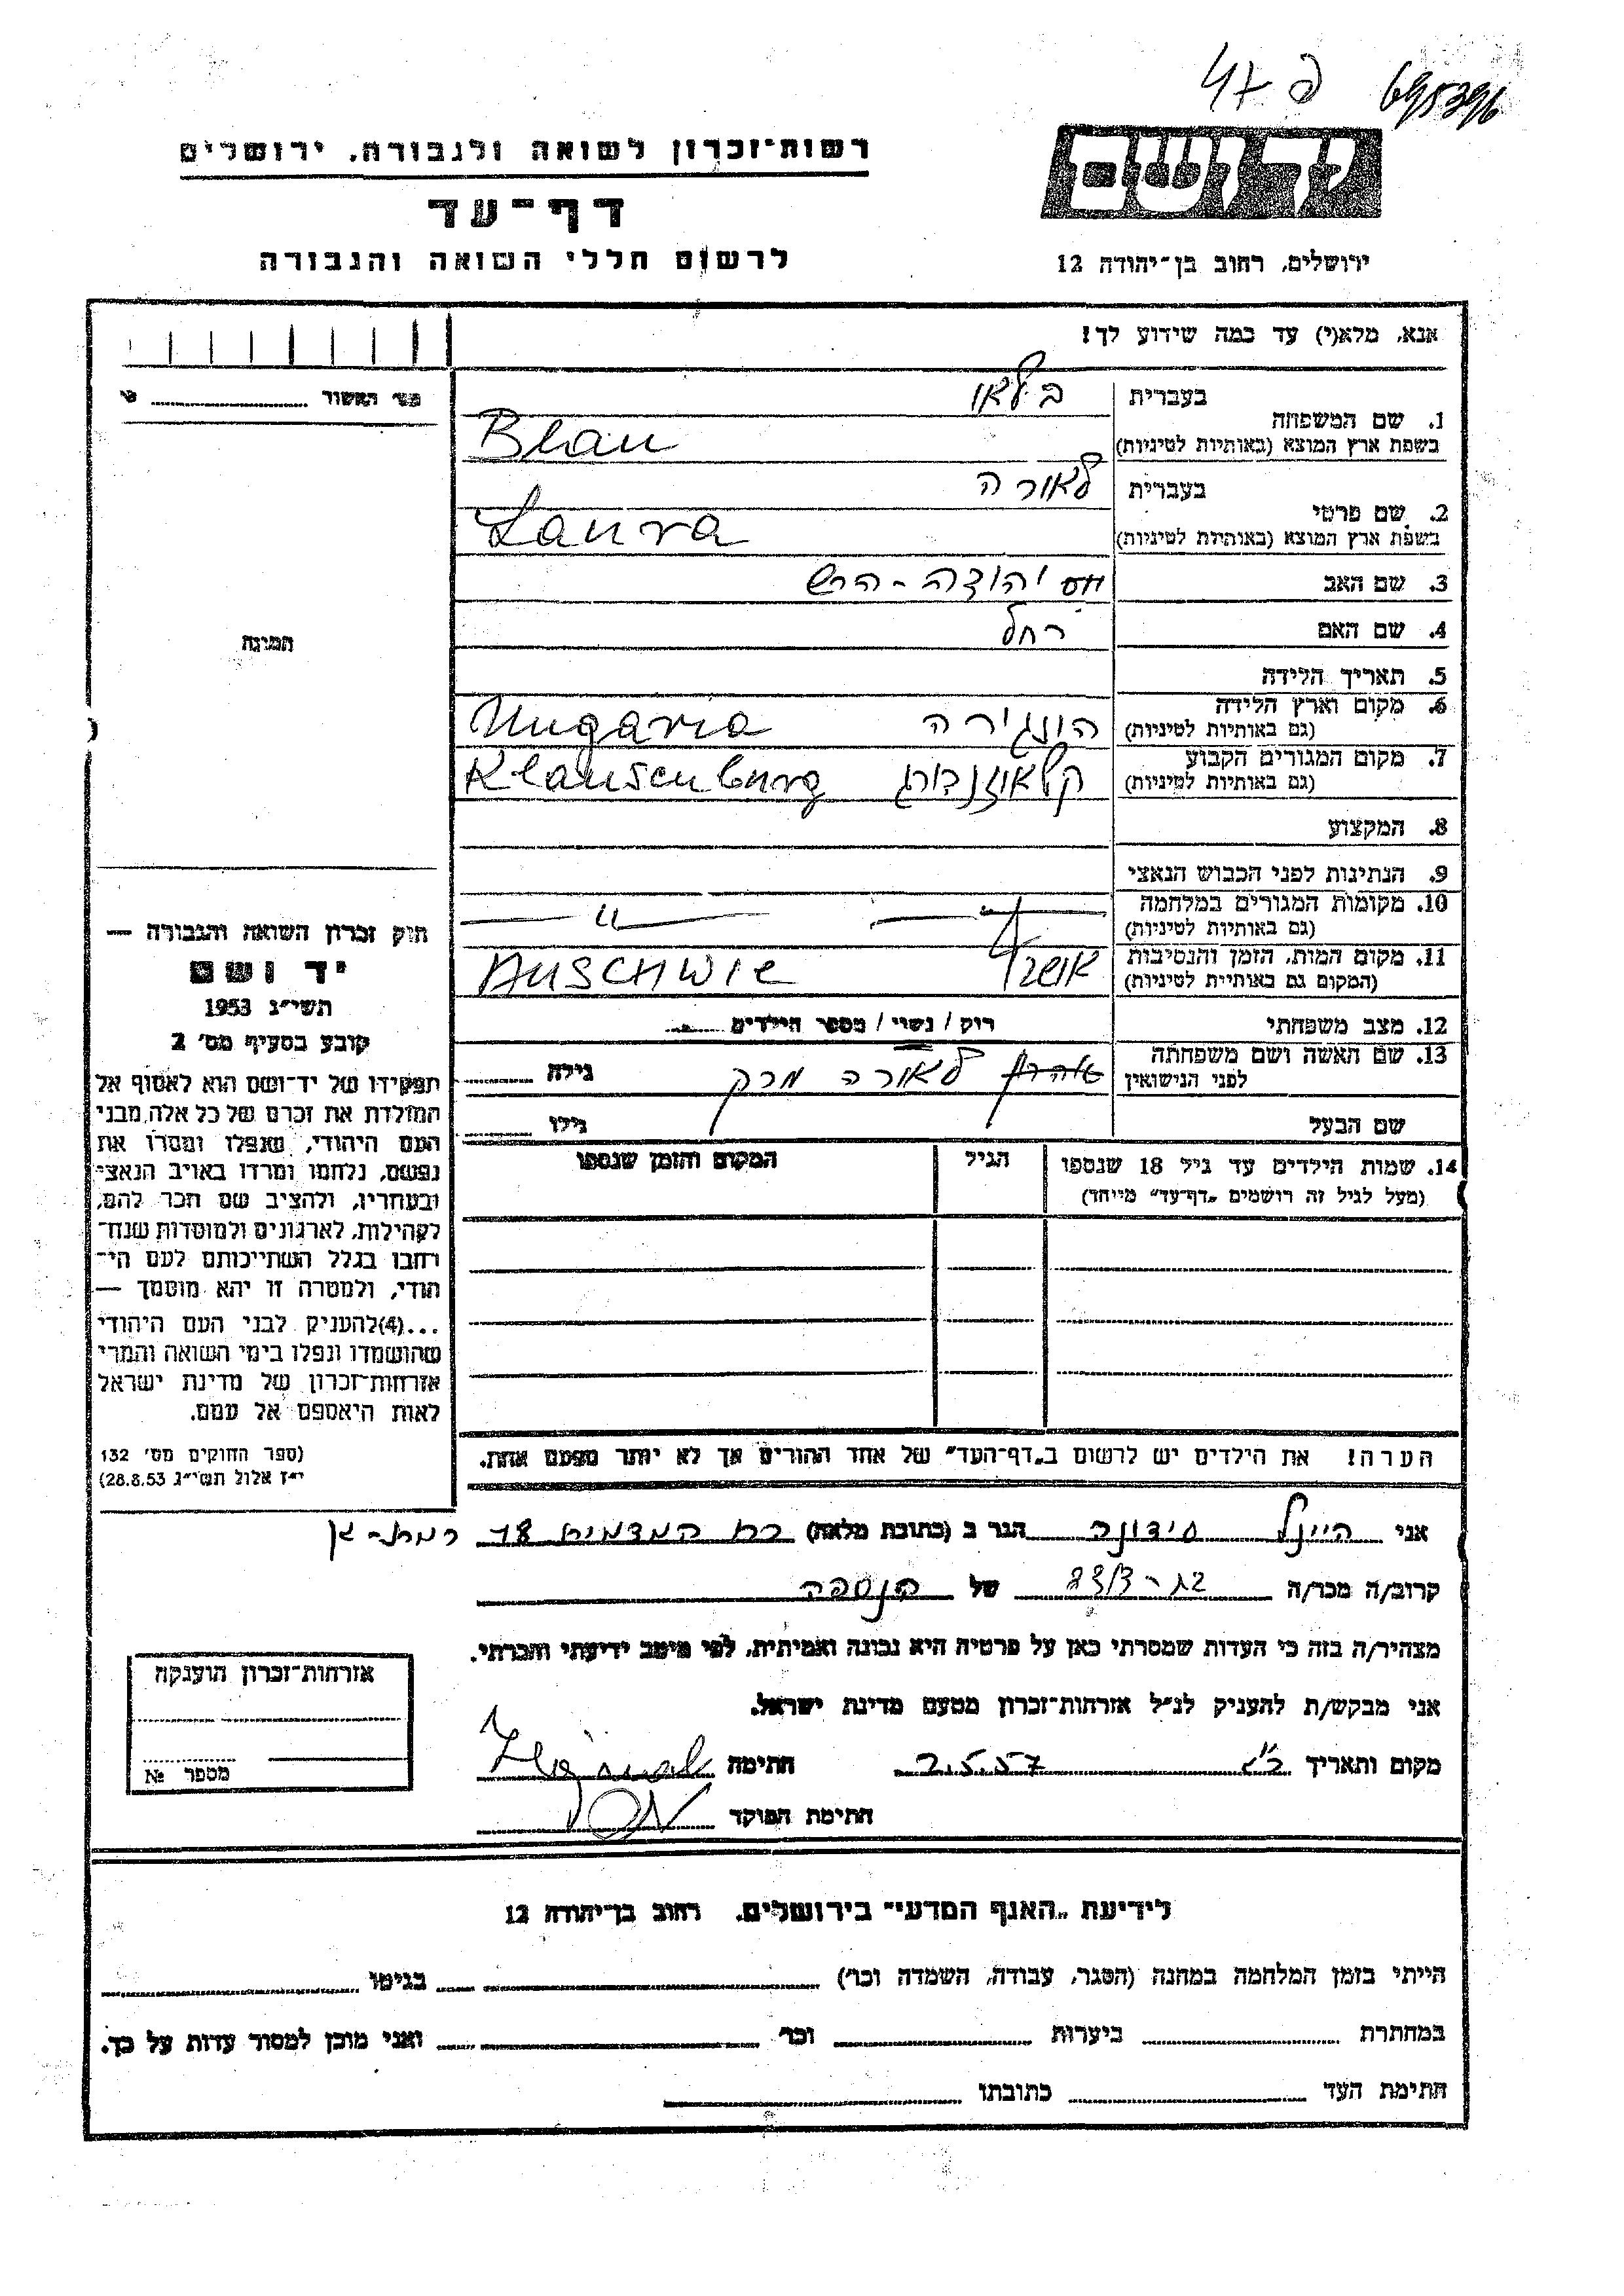 695396
47 פ
ידושם
רשות־זכרון לשואה ולגבורה, ירושלים
דף־עד
לרשום חללי השואה והגבורה
ירושלים, רחוב בן־יהודה 12
אנא, מלא(י) עד כמה שידוע לך!
1. שם המשפחה
בעברית בלאו
בשפת ארץ המוצא (באותיות לטיניות) Blau
2. שם פרטי
בעברית לאורה
בשפת ארץ המוצא (באותיות לטיניות) Laura
3. שם האב יהודה - הרש
4. שם האם רחל
5. תאריך הלידה
6. מקום וארץ הלידה
(גם באותיות לטיניות) הונגריה Ungaria
7. מקום המגורים הקבוע
(גם באותיות לטיניות) קלאוזנבורג Klausenburg
8. המקצוע
9. הנתינות לפני הכבוש הנאצי
10. מקומות המגורים במלחמה
(גם באותיות לטיניות) — " —
11. מקום המות, הזמן והנסיבות
(המקום גם באותיות לטיניות) AUSCHWIC
12. מצב משפחתי רוק / נשוי / מספר הילדים
13. שם האשה ושם משפחתה
לפני הנישואין לאורה מרק גילה
שם הבעל גילו
14. שמות הילדים עד גיל 18 שנספו
(מעל לגיל זה רושמים „דף־עד" מיוחד)
הגיל
המקום והזמן שנספו
הערה! את הילדים יש לרשום ב„דף־העד" של אחד ההורים אך לא יותר מפעם אחת.
מס' האשור
תמונה
חוק זכרון השואה והגבורה —
יד ושם
תשי״ג 1953
קובע בסעיף מס' 2
תפקידו של יד־ושם הוא לאסוף אל
המולדת את זכרם של כל אלה מבני
העם היהודי, שנפלו ומסרו את
נפשם, נלחמו ומרדו באויב הנאצי
ובעוזריו, ולהציב שם וזכר להם,
לקהילות, לארגונים ולמוסדות שנח־
רבו בגלל השתייכותם לעם הי־
הודי, ולמטרה זו יהא מוסמך —
...(4)להעניק לבני העם היהודי
שהושמדו ונפלו בימי השואה והמרי
אזרחות־זכרון של מדינת ישראל
לאות היאספם אל עמם.
(ספר החוקים מס' 132
י״ז אלול תשי״ג 28.8.53)
אני סידונה הגר ב (כתובת מלאה) 18 רמת-גן
קרוב/ה מכר/ה של הנספה
מצהיר/ה בזה כי העדות שמסרתי כאן על פרטיה היא נכונה ואמיתית, לפי מיטב ידיעתי והכרתי.
אני מבקש/ת להעניק לנ״ל אזרחות־זכרון מטעם מדינת ישראל.
מקום ותאריך 2.5.57 חתימה
חתימת הפוקד
אזרחות־זכרון הוענקה
מספר №
לידיעת „האגף המדעי" בירושלים, רחוב בן־יהודה 12
הייתי בזמן המלחמה במחנה (הסגר, עבודה, השמדה וכו') בגיטו
במחתרת ביערות וכו' ואני מוכן למסור עדות על כך.
חתימת העד כתובתו